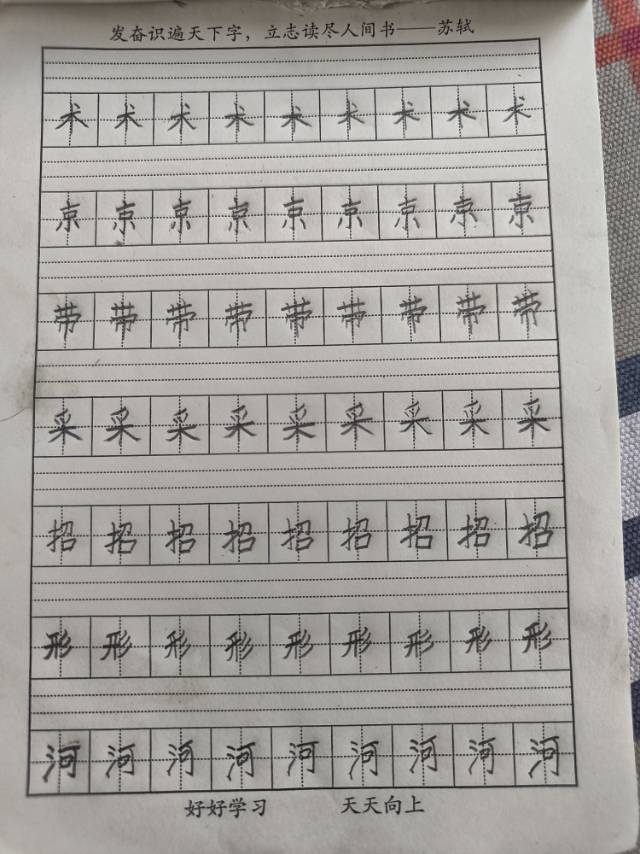 发奋识遍天下字，立志读尽人间书——苏轼
术术术术术术术术术
京京京京京京京京京
带带带带带带带带带
采采采采采采采采采
招招招招招招招招招
形形形形形形形形形
河河河河河河河河河
好好学习 天天向上